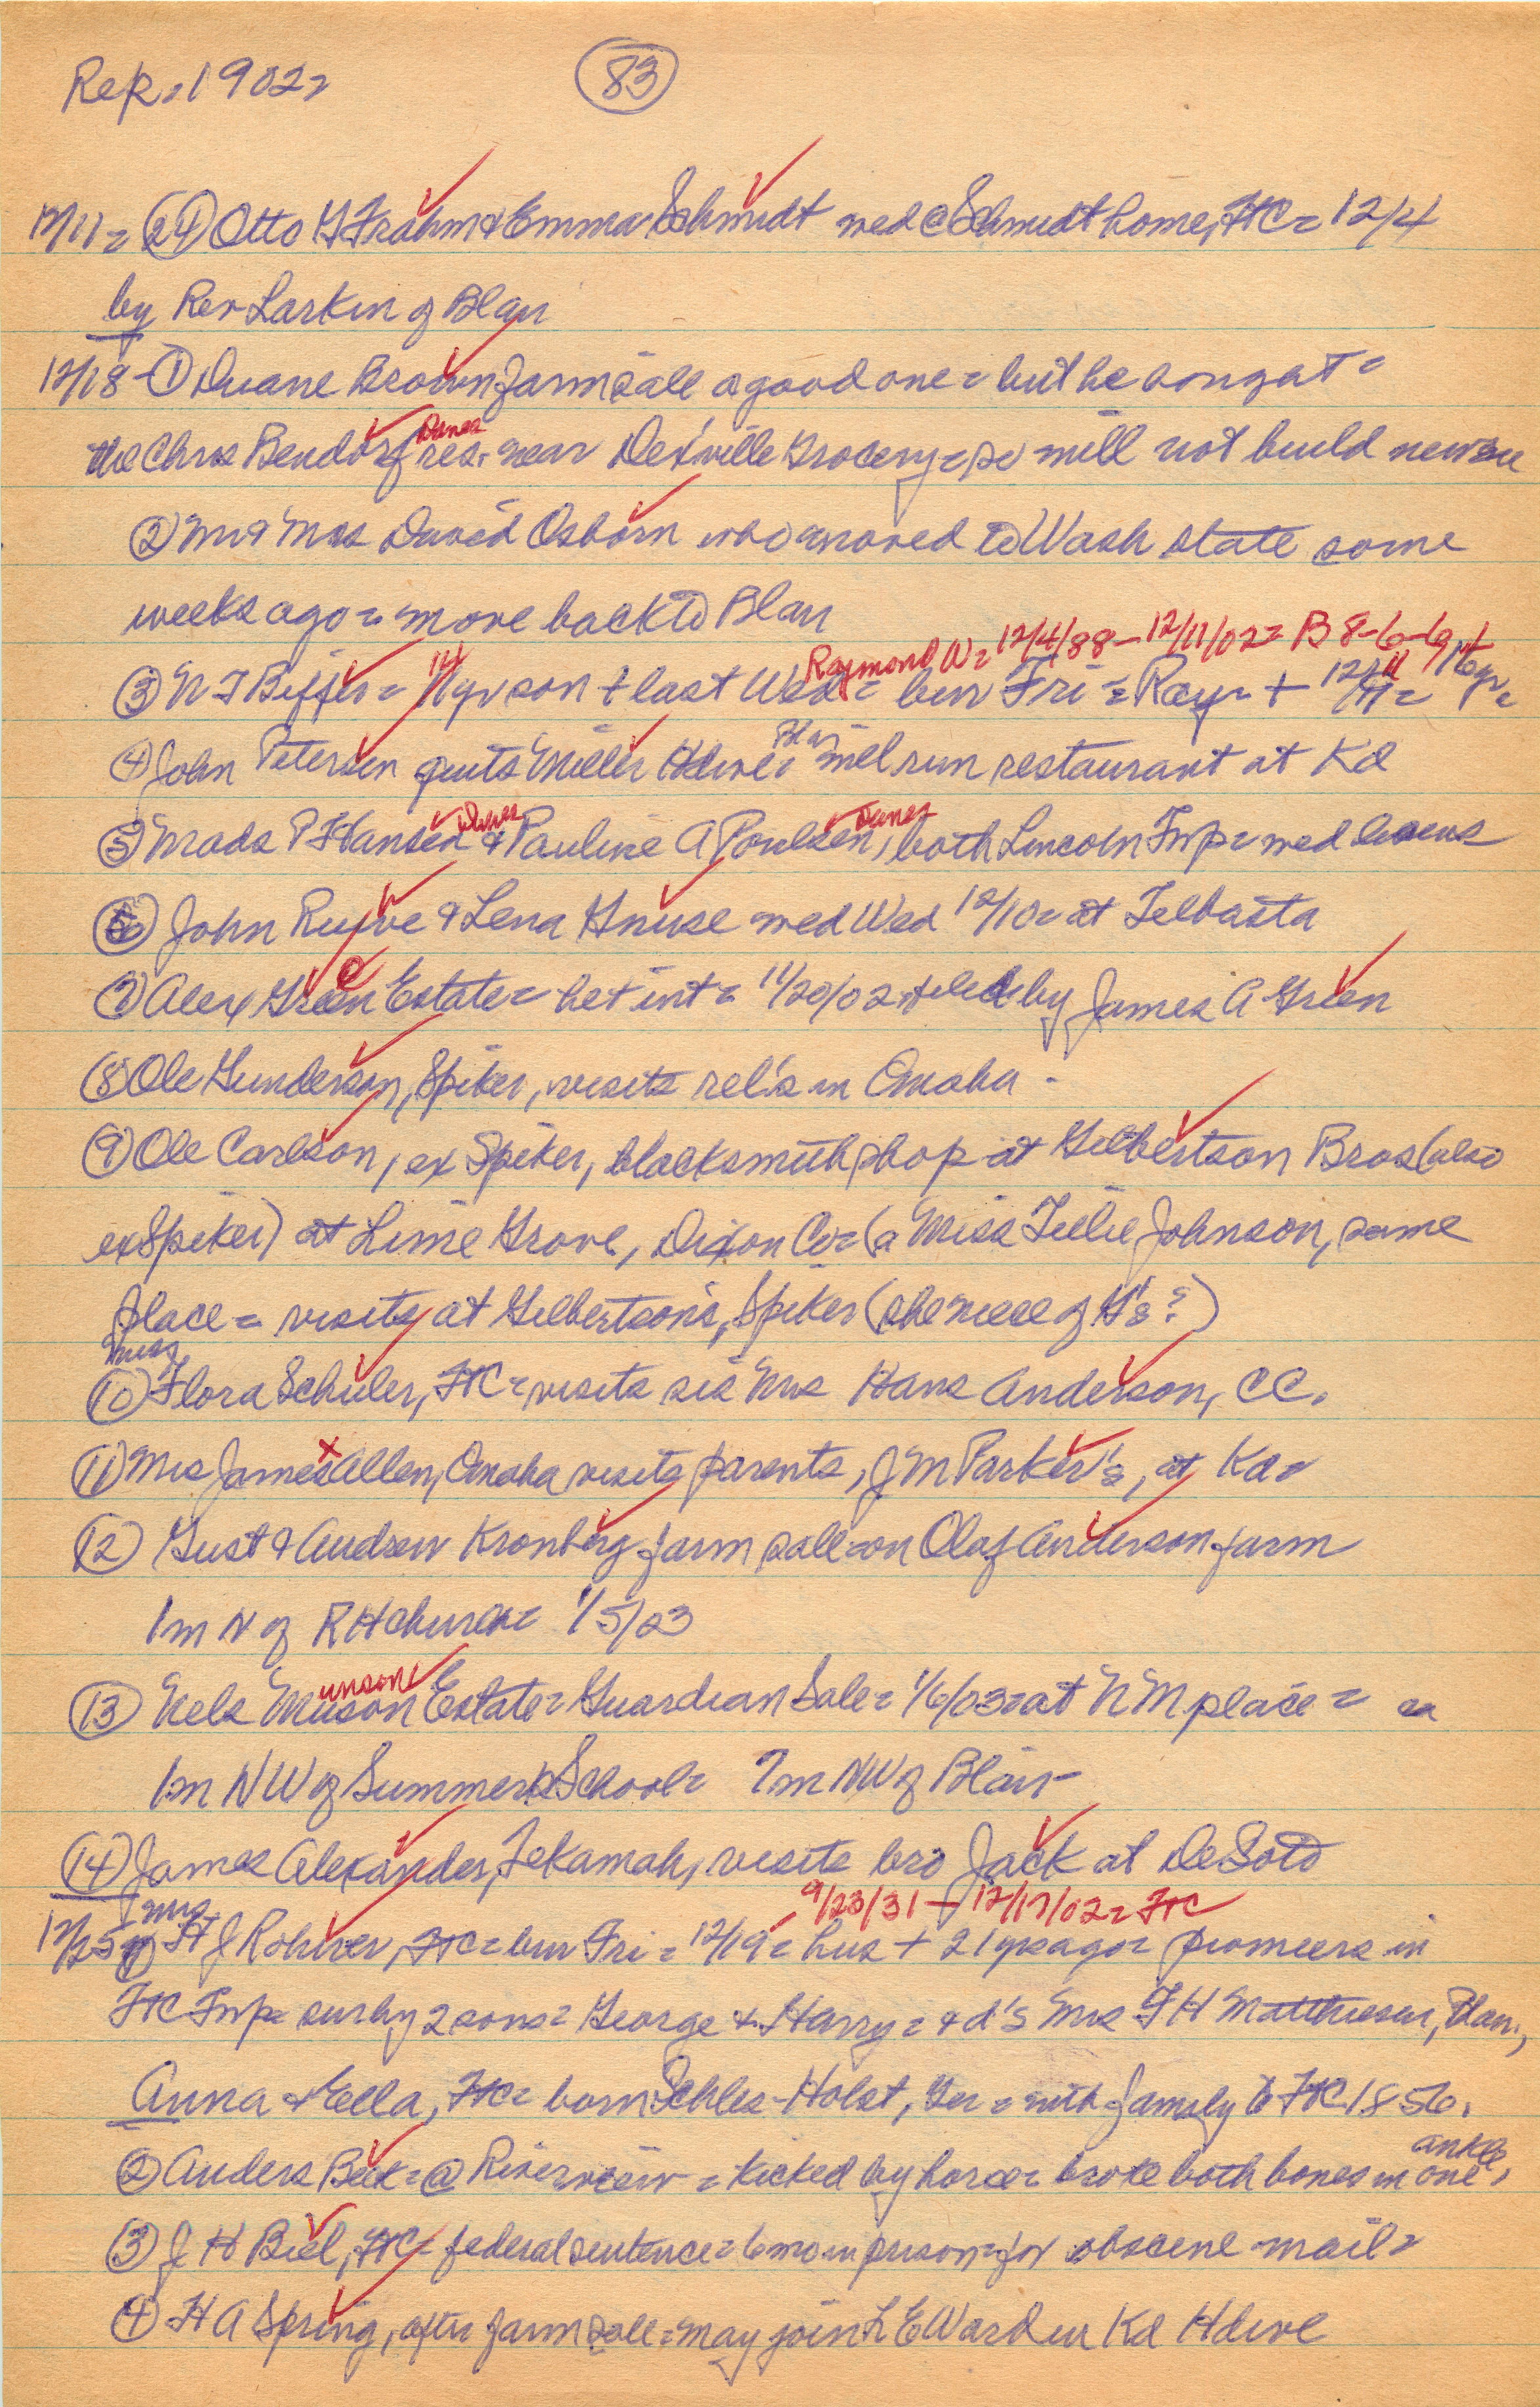 Rep. 1902= 83
12/11= (24) Otto G Frahm & Emma Schmidt wed @ Schmidt home, FtC= 12/4
by Rev Larkin of Blair
12/18- (1) Duane Brown farm sale a good one= but he bought=
the Chris Bendorf Danes res. near Dexville Grocery= so will not build new one
(2) Mr & Mrs David Osborn who moved to Wash state some
weeks ago= move back to Blair
Raymond W= 12/4/88 - 12/11/02= B 8-6-69
(3) N T= 14 yr son + last Wed= bur Fri= Ray= + 12/11= 14 yr=
(4) John Petersen quits Miller Hdwe= Blair will run restaurant at Kd
(5) Mads P Hansen Danes & Pauline A Poulsen, Danes both Lincoln Twp= wed license
(6) John Ruwe & Lena Gnuse wed Wed 12/10= at Telbasta
(7) Alex Green Estate= pet int= 11/20/02 filed by James A Green
(8) Ole Gunderson, Spiker, visits rel's in Omaha -
(9) Ole Carlson, ex Spiker, blacksmith shop at Gilbertson Bros (also
ex Spiker) at Lime Grove, Dixon Co= (a Miss Tillie Johnson, same
place= visits at Gilbertson's, Spiker (she niece of G's?)
Miss
(10) Flora Schuler, FtC= visits sis Mrs Hans Anderson, CC.
(11) Mrs James Allen, Omaha visits parents, J M Parker's, at Kd=
(12) Gust & Andrew Kronberg farm sale= on Olaf Anderson farm
1m N of RH church= 1/5/03
(13) Nels Munson Estate= Guardian Sale= 1/6/03= at NM place=
1m NW of Summers School= 7m NW of Blair-
(14) James Alexander, Tekamah, visits bro Jack at DeSoto
9/23/31 - 12/17/02= FtC
12/25 (1) Mrs H J Rohwer, FtC= bur Fri= 12/19= hus + 21 yrs ago= pioneers in
FtC Twp= sur by 2 sons= George & Harry= & d's Mrs F H Matthiesen, Blair,
Anna & Ella, FtC= born Schles-Holst, Ger= with family to FtC 1856.
(2) Anders Beck= @ Riverview= kicked by horse= broke both bones in one ankle,
(3) J H Biel, FtC= federal sentence= 6 mo in prison= for obscene mail=
(4) H A Spring, after farm sale= may join L E Ward in Kd Hdwe